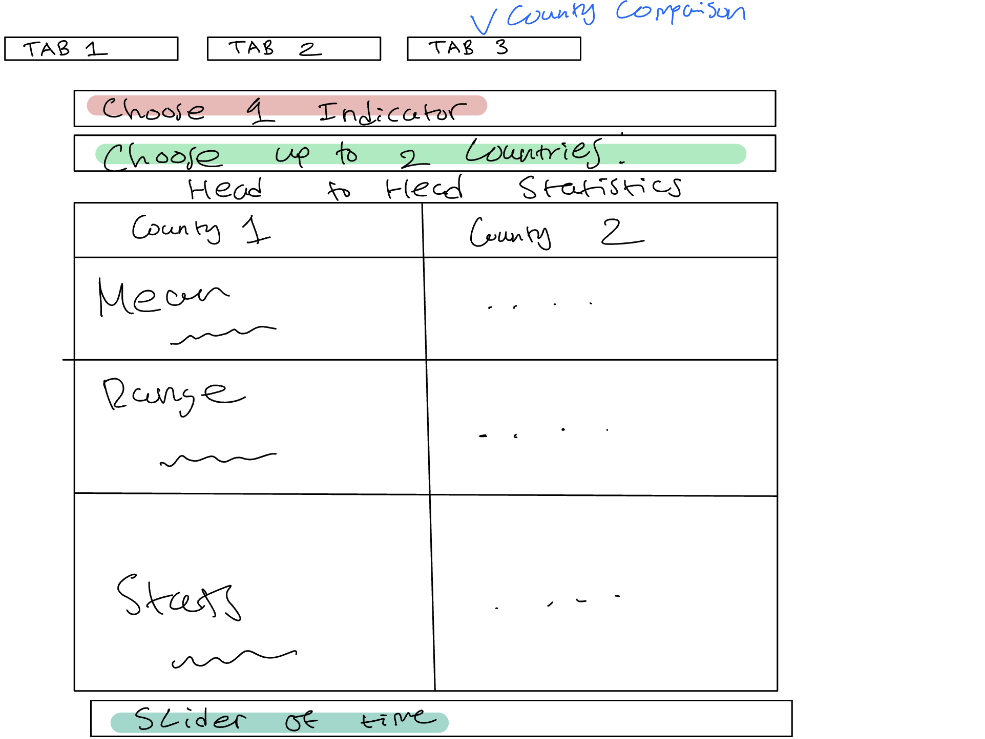 County Comparison
TAB 1 TAB 2 TAB 3
Choose 1 Indicator
Choose up to 2 Countries:
Head to Head Statistics
County 1 County 2
Mean
Range
Stats
Slider of time